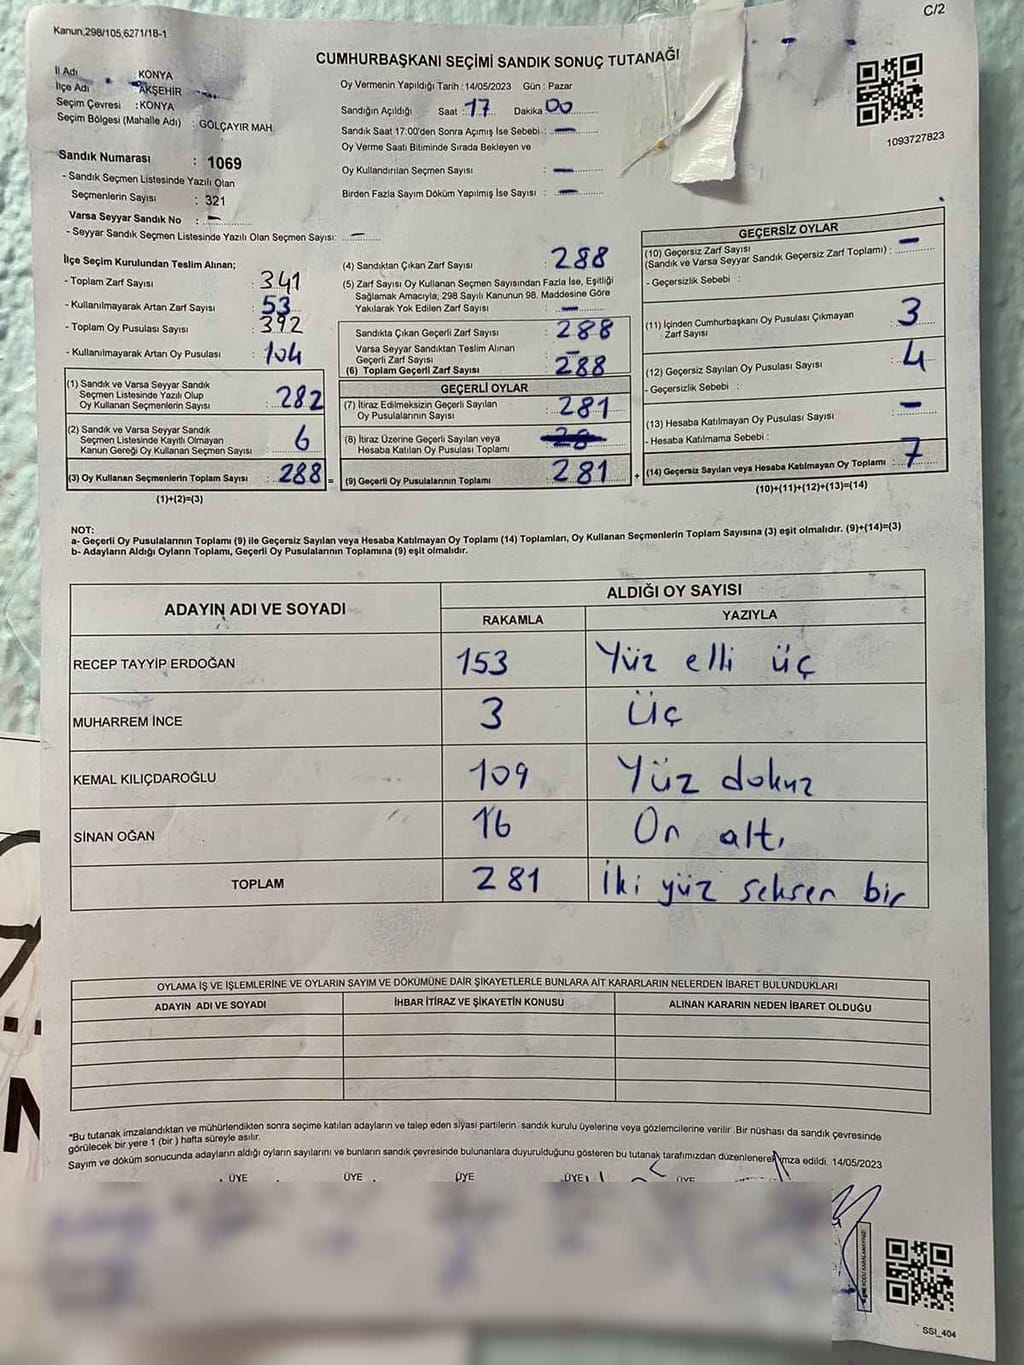 Kanun,298/105,6271/18-1
C/2
CUMHURBAŞKANI SEÇİMİ SANDIK SONUÇ TUTANAĞI
İl Adı KONYA
İlçe Adı AKŞEHİR
Seçim Çevresi : KONYA
Seçim Bölgesi (Mahalle Adı) : GÖLÇAYIR MAH.
Sandık Numarası : 1069
- Sandık Seçmen Listesinde Yazılı Olan
Seçmenlerin Sayısı : 321
Varsa Seyyar Sandık No : -
- Seyyar Sandık Seçmen Listesinde Yazılı Olan Seçmen Sayısı: -
Oy Vermenin Yapıldığı Tarih :14/05/2023 Gün : Pazar
Sandığın Açıldığı Saat : 17 Dakika 00
Sandık Saat 17:00'den Sonra Açımış İse Sebebi : -
Oy Verme Saati Bitiminde Sırada Bekleyen ve
Oy Kullandırılan Seçmen Sayısı : -
Birden Fazla Sayım Döküm Yapılmış İse Sayısı : -
1093727823
İlçe Seçim Kurulundan Teslim Alınan;
- Toplam Zarf Sayısı : 341
- Kullanılmayarak Artan Zarf Sayısı : 53
- Toplam Oy Pusulası Sayısı : 392
- Kullanılmayarak Artan Oy Pusulası : 104
(1) Sandık ve Varsa Seyyar Sandık
Seçmen Listesinde Yazılı Olup
Oy Kullanan Seçmenlerin Sayısı : 282
(2) Sandık ve Varsa Seyyar Sandık
Seçmen Listesinde Kayıtlı Olmayan
Kanun Gereği Oy Kullanan Seçmen Sayısı : 6
(3) Oy Kullanan Seçmenlerin Toplam Sayısı : 288 =
(1)+(2)=(3)
(4) Sandıktan Çıkan Zarf Sayısı : 288
(5) Zarf Sayısı Oy Kullanan Seçmen Sayısından Fazla İse, Eşitliği
Sağlamak Amacıyla, 298 Sayılı Kanunun 98. Maddesine Göre
Yakılarak Yok Edilen Zarf Sayısı : -
Sandıkta Çıkan Geçerli Zarf Sayısı : 288
Varsa Seyyar Sandıktan Teslim Alınan
Geçerli Zarf Sayısı : -
(6) Toplam Geçerli Zarf Sayısı : 288
GEÇERLİ OYLAR
(7) İtiraz Edilmeksizin Geçerli Sayılan
Oy Pusulalarının Sayısı : 281
(8) İtiraz Üzerine Geçerli Sayılan veya
Hesaba Katılan Oy Pusulası Toplamı :
(9) Geçerli Oy Pusulalarının Toplamı : 281 +
GEÇERSİZ OYLAR
(10) Geçersiz Zarf Sayısı
(Sandık ve Varsa Seyyar Sandık Geçersiz Zarf Toplamı) : -
- Geçersizlik Sebebi :
(11) İçinden Cumhurbaşkanı Oy Pusulası Çıkmayan
Zarf Sayısı : 3
(12) Geçersiz Sayılan Oy Pusulası Sayısı : 4
- Geçersizlik Sebebi :
(13) Hesaba Katılmayan Oy Pusulası Sayısı : -
- Hesaba Katılmama Sebebi :
(14) Geçersiz Sayılan veya Hesaba Katılmayan Oy Toplamı : 7
(10)+(11)+(12)+(13)=(14)
NOT:
a- Geçerli Oy Pusulalarının Toplamı (9) ile Geçersiz Sayılan veya Hesaba Katılmayan Oy Toplamı (14) Toplamları, Oy Kullanan Seçmenlerin Toplam Sayısına (3) eşit olmalıdır. (9)+(14)=(3)
b- Adayların Aldığı Oyların Toplamı, Geçerli Oy Pusulalarının Toplamına (9) eşit olmalıdır.
ADAYIN ADI VE SOYADI ALDIĞI OY SAYISI
RAKAMLA YAZIYLA
RECEP TAYYİP ERDOĞAN 153 Yüz elli üç
MUHARREM İNCE 3 Üç
KEMAL KILIÇDAROĞLU 109 Yüz dokuz
SİNAN OĞAN 16 On altı
TOPLAM 281 İki yüz seksen bir
OYLAMA İŞ VE İŞLEMLERİNE VE OYLARIN SAYIM VE DÖKÜMÜNE DAİR ŞİKAYETLERLE BUNLARA AİT KARARLARIN NELERDEN İBARET BULUNDUKLARI
ADAYIN ADI VE SOYADI İHBAR İTİRAZ VE ŞİKAYETİN KONUSU ALINAN KARARIN NEDEN İBARET OLDUĞU
*Bu tutanak imzalandıktan ve mühürlendikten sonra seçime katılan adayların ve talep eden siyasi partilerin sandık kurulu üyelerine veya gözlemcilerine verilir .Bir nüshası da sandık çevresinde
görülecek bir yere 1 (bir ) hafta süreyle asılır.
Sayım ve döküm sonucunda adayların aldığı oyların sayılarını ve bunların sandık çevresinde bulunanlara duyurulduğunu gösteren bu tutanak tarafımızdan düzenlenerek imza edildi. 14/05/2023
ÜYE ÜYE ÜYE ÜYE ÜYE
SSI_404